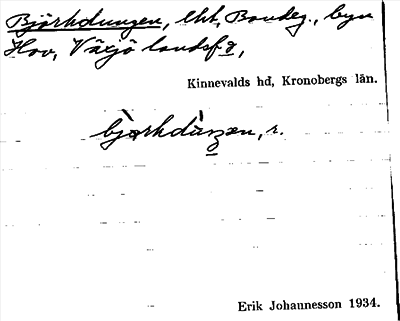 Björkdungen, lht, Bondeg., byn
Hov, Växjö landsfg,
Kinnevalds hd, Kronobergs län.
r.
Erik Johannesson 1934.